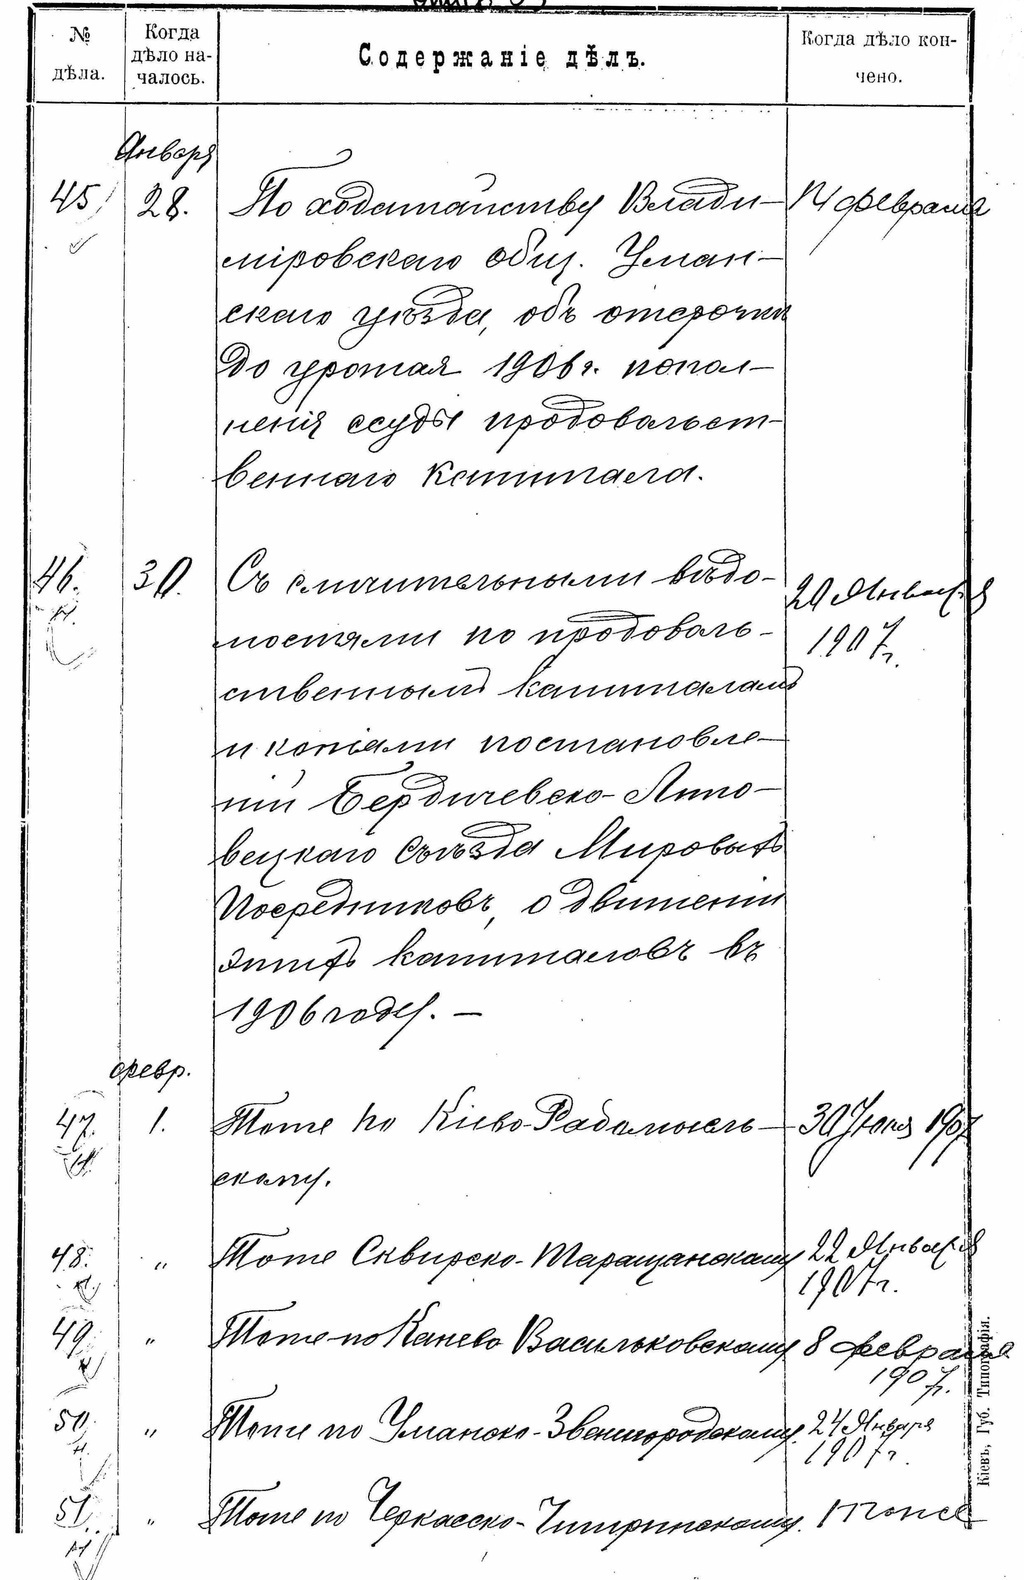 № дѣла.
Когда дѣло на-
чалось.
Содержаніе дѣлъ.
Когда дѣло кон-
чено.
Января
45 28. По ходатайству Влади- 14 февраля
міровскаго общ. Уман-
скаго уѣзда, объ отсрочки
до урожая 1906 г. попол-
ненія ссуды продовольст-
веннаго капитала.
46. 30. Съ смѣтительными вѣдо- 20 Января
мостями по продоволь- 1907 г.
ственнымъ капиталамъ
и копіями постановле-
ній Бердичевско-Липо-
вецкаго Съѣзда Мировыхъ
Посредниковъ, о движеніи
этихъ капиталовъ въ
1906 году. —
февр.
47. 1. Тоже по Кіево-Радомысль- 30 Іюня 1907
скому.
48. " Тоже Сквирско-Таращанскому 22 Января
1907 г.
49. " Тоже по Канево Васильковскому 8 февраля
1907 г.
50. " Тоже по Уманско-Звенигородскому. 24 Января
1907 г.
51. " Тоже по Черкасско-Чигиринскому. 1 тоже
Кіевъ, Губ. Типографія.